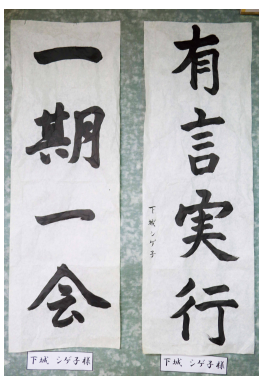 有言実行
下城シゲ子
下城 シゲ子様
一期一会
下城 シゲ子様